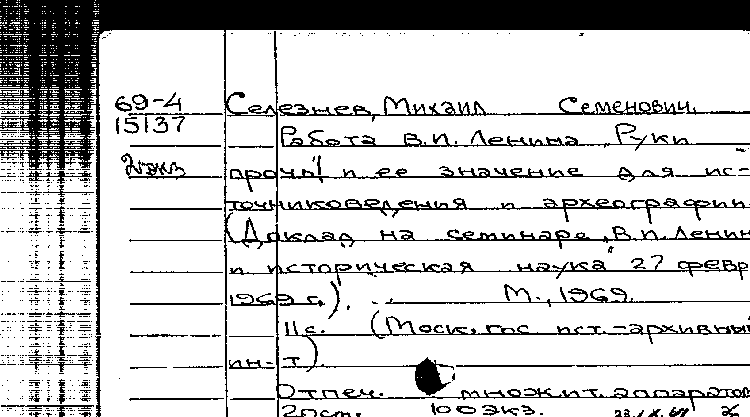 69-4 Селезнев, Михаил Семенович.
15137
Работа В.И. Ленина „Руки
2 экз
прочь!" и ее значение для ис-
точниковедения и археографии
(Доклад на семинаре „В.И. Ленин
и историческая наука" 27 февр
1969 г.). М., 1969.
11 с. (Моск. гос. ист.-архивный
ин-т)
Отпеч. множит. аппаратом
100 экз.